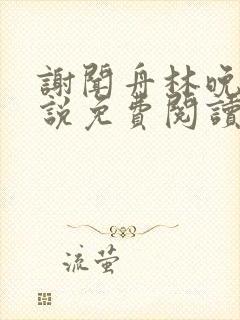 謝聞舟林晚
說免費閱讀
流萤